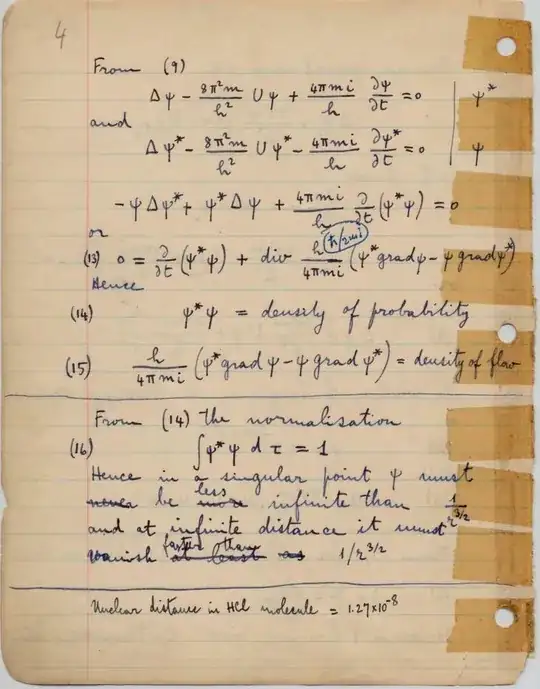 4
From (9)
Δψ - 8π²m/h² Uψ + 4πmi/h ∂ψ/∂t = 0 | ψ*
and
Δψ* - 8π²m/h² Uψ* - 4πmi/h ∂ψ*/∂t = 0 | ψ
-ψΔψ* + ψ*Δψ + 4πmi/h ∂/∂t (ψ*ψ) = 0
or
ħ/2mi
(13) 0 = ∂/∂t (ψ*ψ) + div h/4πmi (ψ* grad ψ - ψ grad ψ*)
Hence
(14) ψ*ψ = density of probability
(15) h/4πmi (ψ* grad ψ - ψ grad ψ*) = density of flow
From (14) the normalisation
(16) ∫ψ*ψ dτ = 1
Hence in a singular point ψ must
never be more less infinite than 1/r^3/2
and at infinite distance it must
vanish at least as faster than 1/r^3/2
Nuclear distance in HCl molecule = 1.27×10^-8